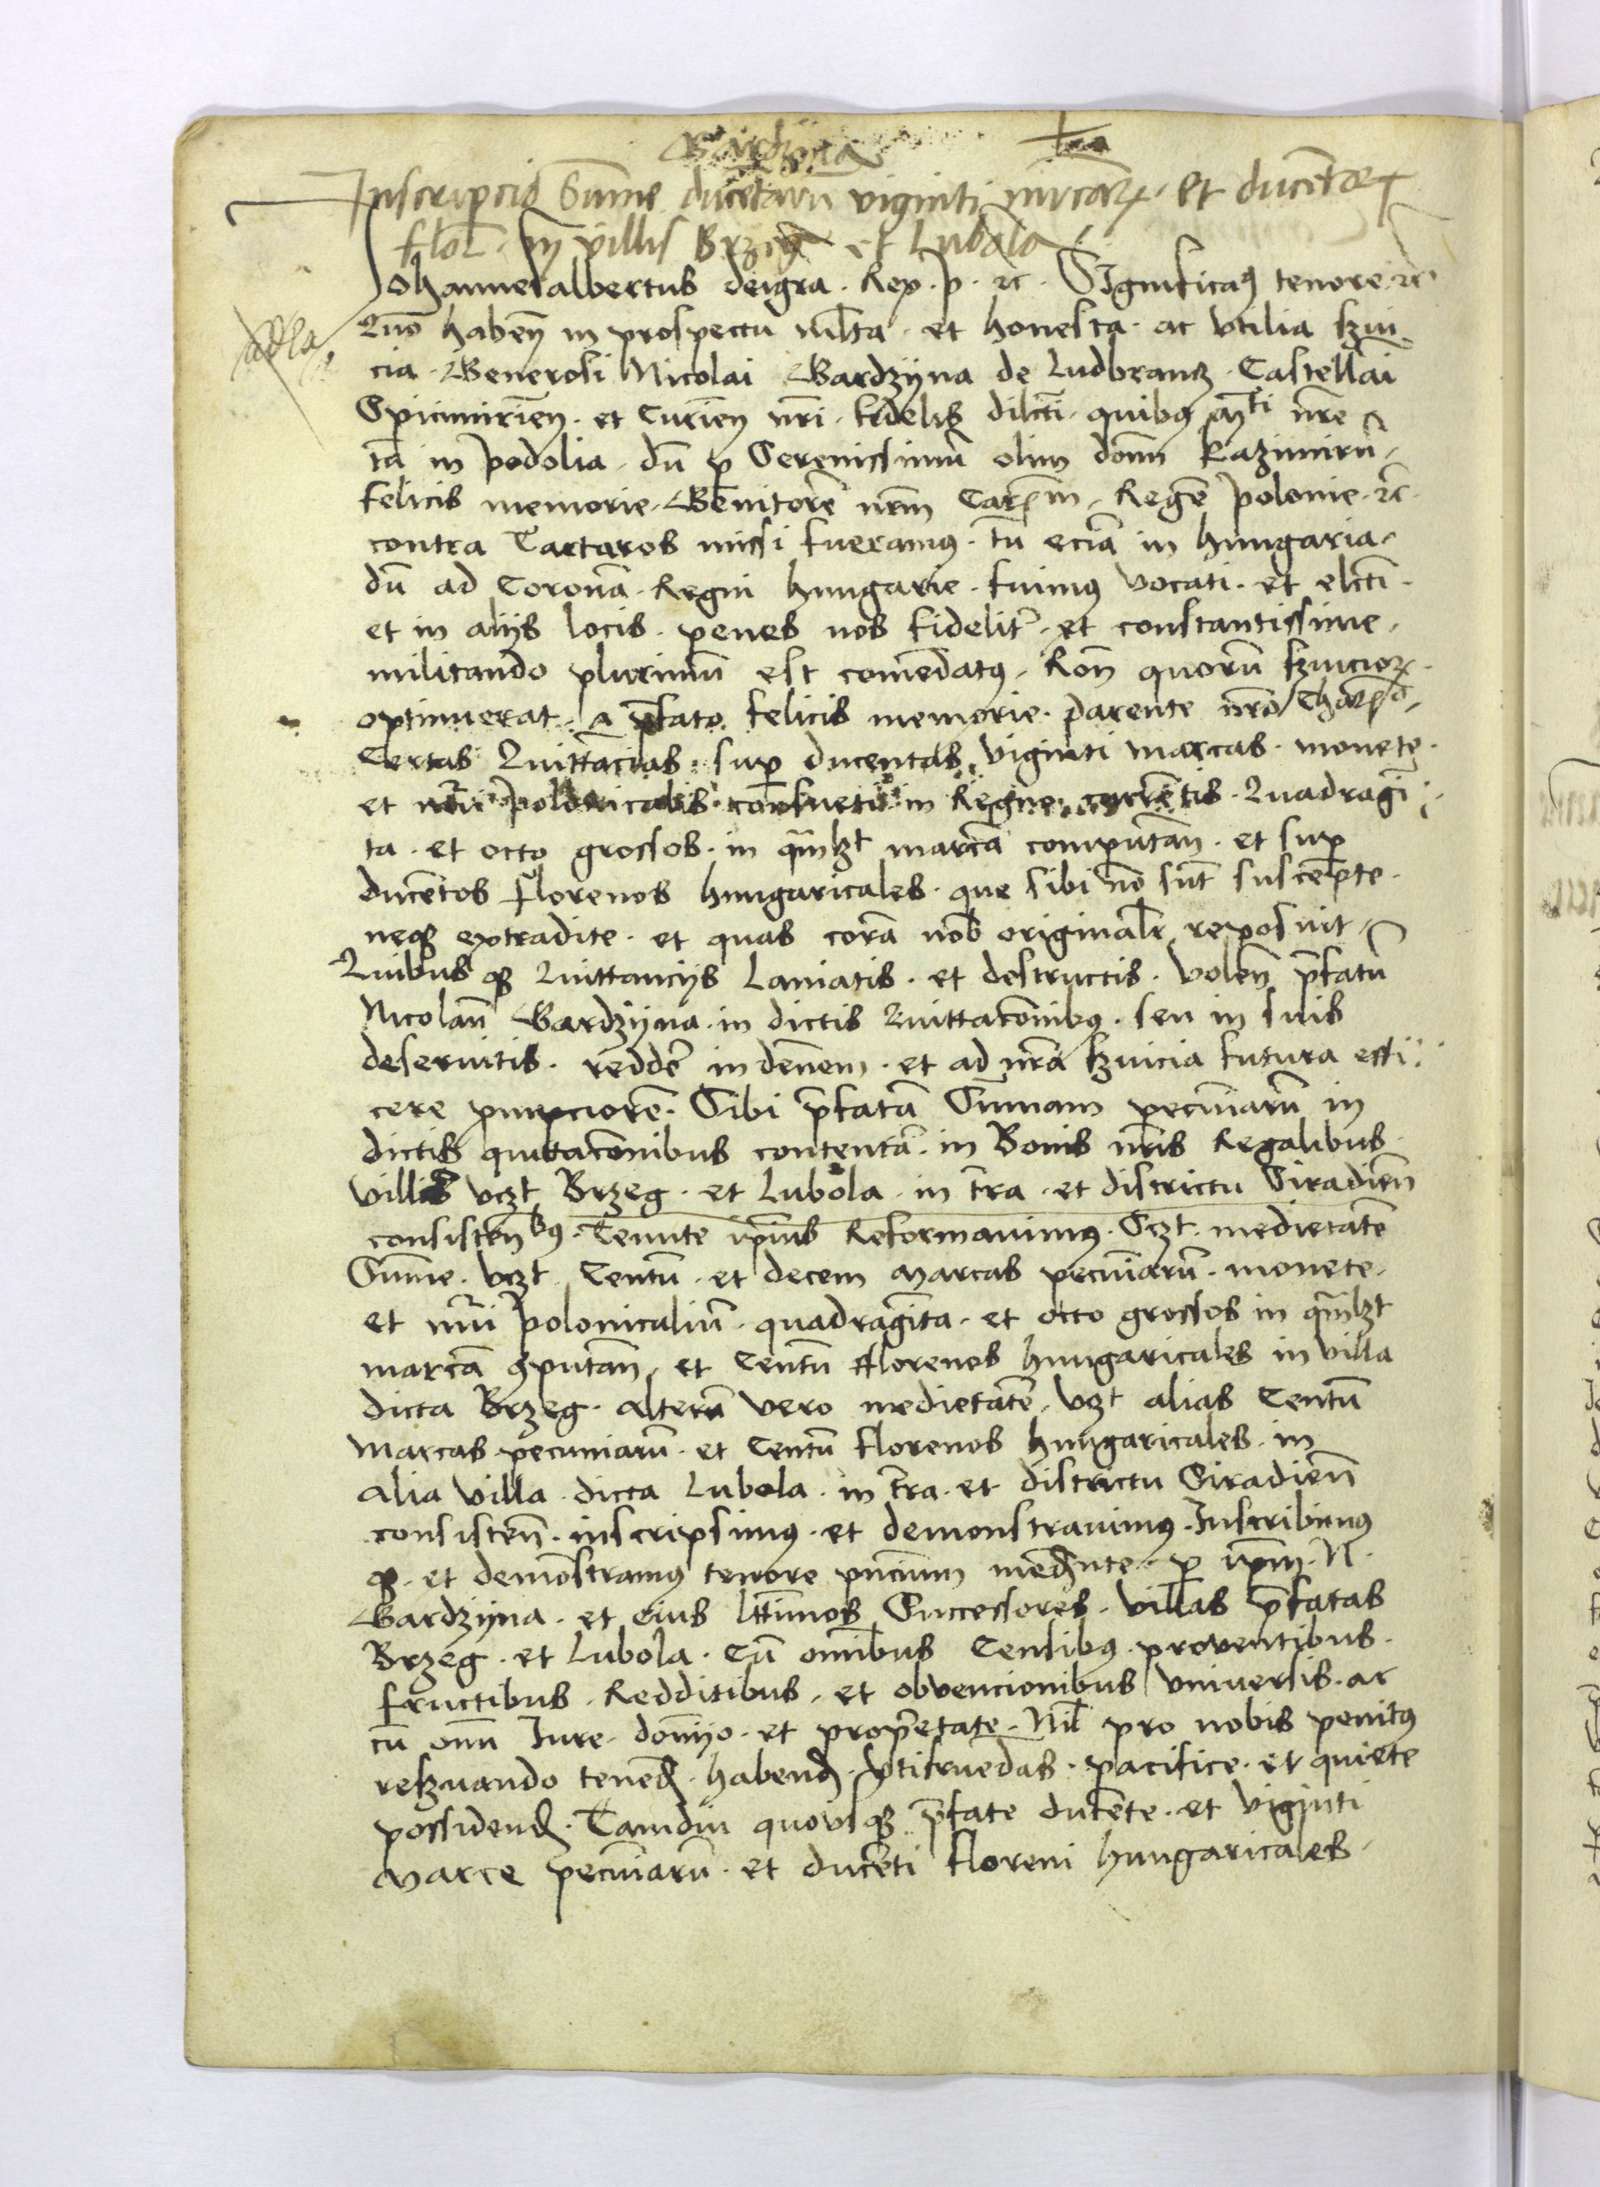 Bardzijna
Inscripcio Sum̄e ducētarū viginti mrcaꝝ et ducētoꝝ
florꝝ in villis Brzeg et Lubola
Johannesalbertus deigra. Rex. p. ⁊c. Significamꝰ tenore ⁊c
Quō haben̄ in prospectu ml̄ta. et honesta. ac vtilia ẜui
cia. Generosi Nicolai Bardzijna de Ludbrancz. Castellāi
Spicimirien̄. et Curien̄ nr̄i. fidelis dilcti. quibꝰ Mti nr̄e
tā in podolia. dū ꝑ Serenissimū olim dom̄ Kazimirū
felicis memorie. Genitorē nrm̄ Carm̄. Regē polonie. ⁊c
contra Tartaros missi fueramꝰ. tū eciā in hungaria.
dū ad Coronā. Regni hungarie. fuimus vocati. et elcti.
et in alijs locis. penes nos fidelitr̄. et constantissime.
militando plurimū est comēdatꝰ. Ron̄ quorū ẜuicioꝝ.
optinuerat. a p̄fato felicis memorie. parente nr̄o
Certas Quittacias. sup ducentas viginti marcas. monete.
et nūi polonicalis. consueti in Regno currētis. Quadragī
ta. et octo grossos. in qm̄lzt marcā computan̄. et suꝑ
ducētos florenos hungaricales. que sibi nō sūt suscepte.
neqꝫ extradite. et quas corā nob̄ originalr̄ reposuit.
Quibus qꝫ Quittancijs laniatis. et destructis. volen̄ p̄fatū
Nicolaū Bardzijna. in dictis Quittacōnibꝰ. seu in suis
deseruitis. reddē indēnem. et ad nr̄a ẜuicia futura effi
cere pmpciorē. Sibi p̄fatā Sum̄am pecuniarū in
dictis quittacōnibus contentā. in Bonis nr̄is Regalibus
villis vczt Brzeg. et Lubola. in tr̄a. et districtu Siradien̄
consisten̄bꝰ. Tenute ip̄ius Reformauimꝰ. Sczt. medietatē
Sum̄e. vczt. Centū. et decem Marcas pecuniarū. monete.
et nūi polonicalium. quadragīta. et octo grossos in qm̄lzt
marcā ꝯputan̄. et Centū florenos hungaricales in villa
dicta Brzeg. alterā vero medietatē. vczt alias Centū
Marcas pecuniarū. et Centū florenos hungaricales. in
alia villa. dicta Lubola. in tr̄a. et districtu Siradien̄
consisten̄. inscripsimꝰ. et demonstrauimꝰ. Inscribimus
qꝫ. et demōstramꝰ tenore pn̄cium mediante. ꝑ ip̄m. N.
Bardzijna. et eius lttīmos Successores. villas p̄fatas
Brzeg. et Lubola. Cū om̄ibus Censibꝰ. prouentibus.
fructibus. Redditibus. et obuencionibus vniuersis. ac
cū om̄i Iure. domijo. et proprietate. Nil̄ pro nobis penitꝰ
reẜuando tenend̄. habend̄. vtifruēdas. pacifice. et quiete
possidend̄. Tamdiu quousqꝫ p̄fate ducēte. et viginti
Marce pecuniarū. et ducēti floreni hungaricales.